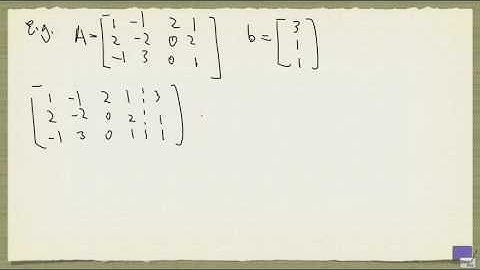 E.g. A = [ 1 -1 2 1
2 -2 0 2
-1 3 0 1 ]
b = [ 3
1
1 ]
[ 1 -1 2 1 ¦ 3
2 -2 0 2 ¦ 1
-1 3 0 1 ¦ 1 ]